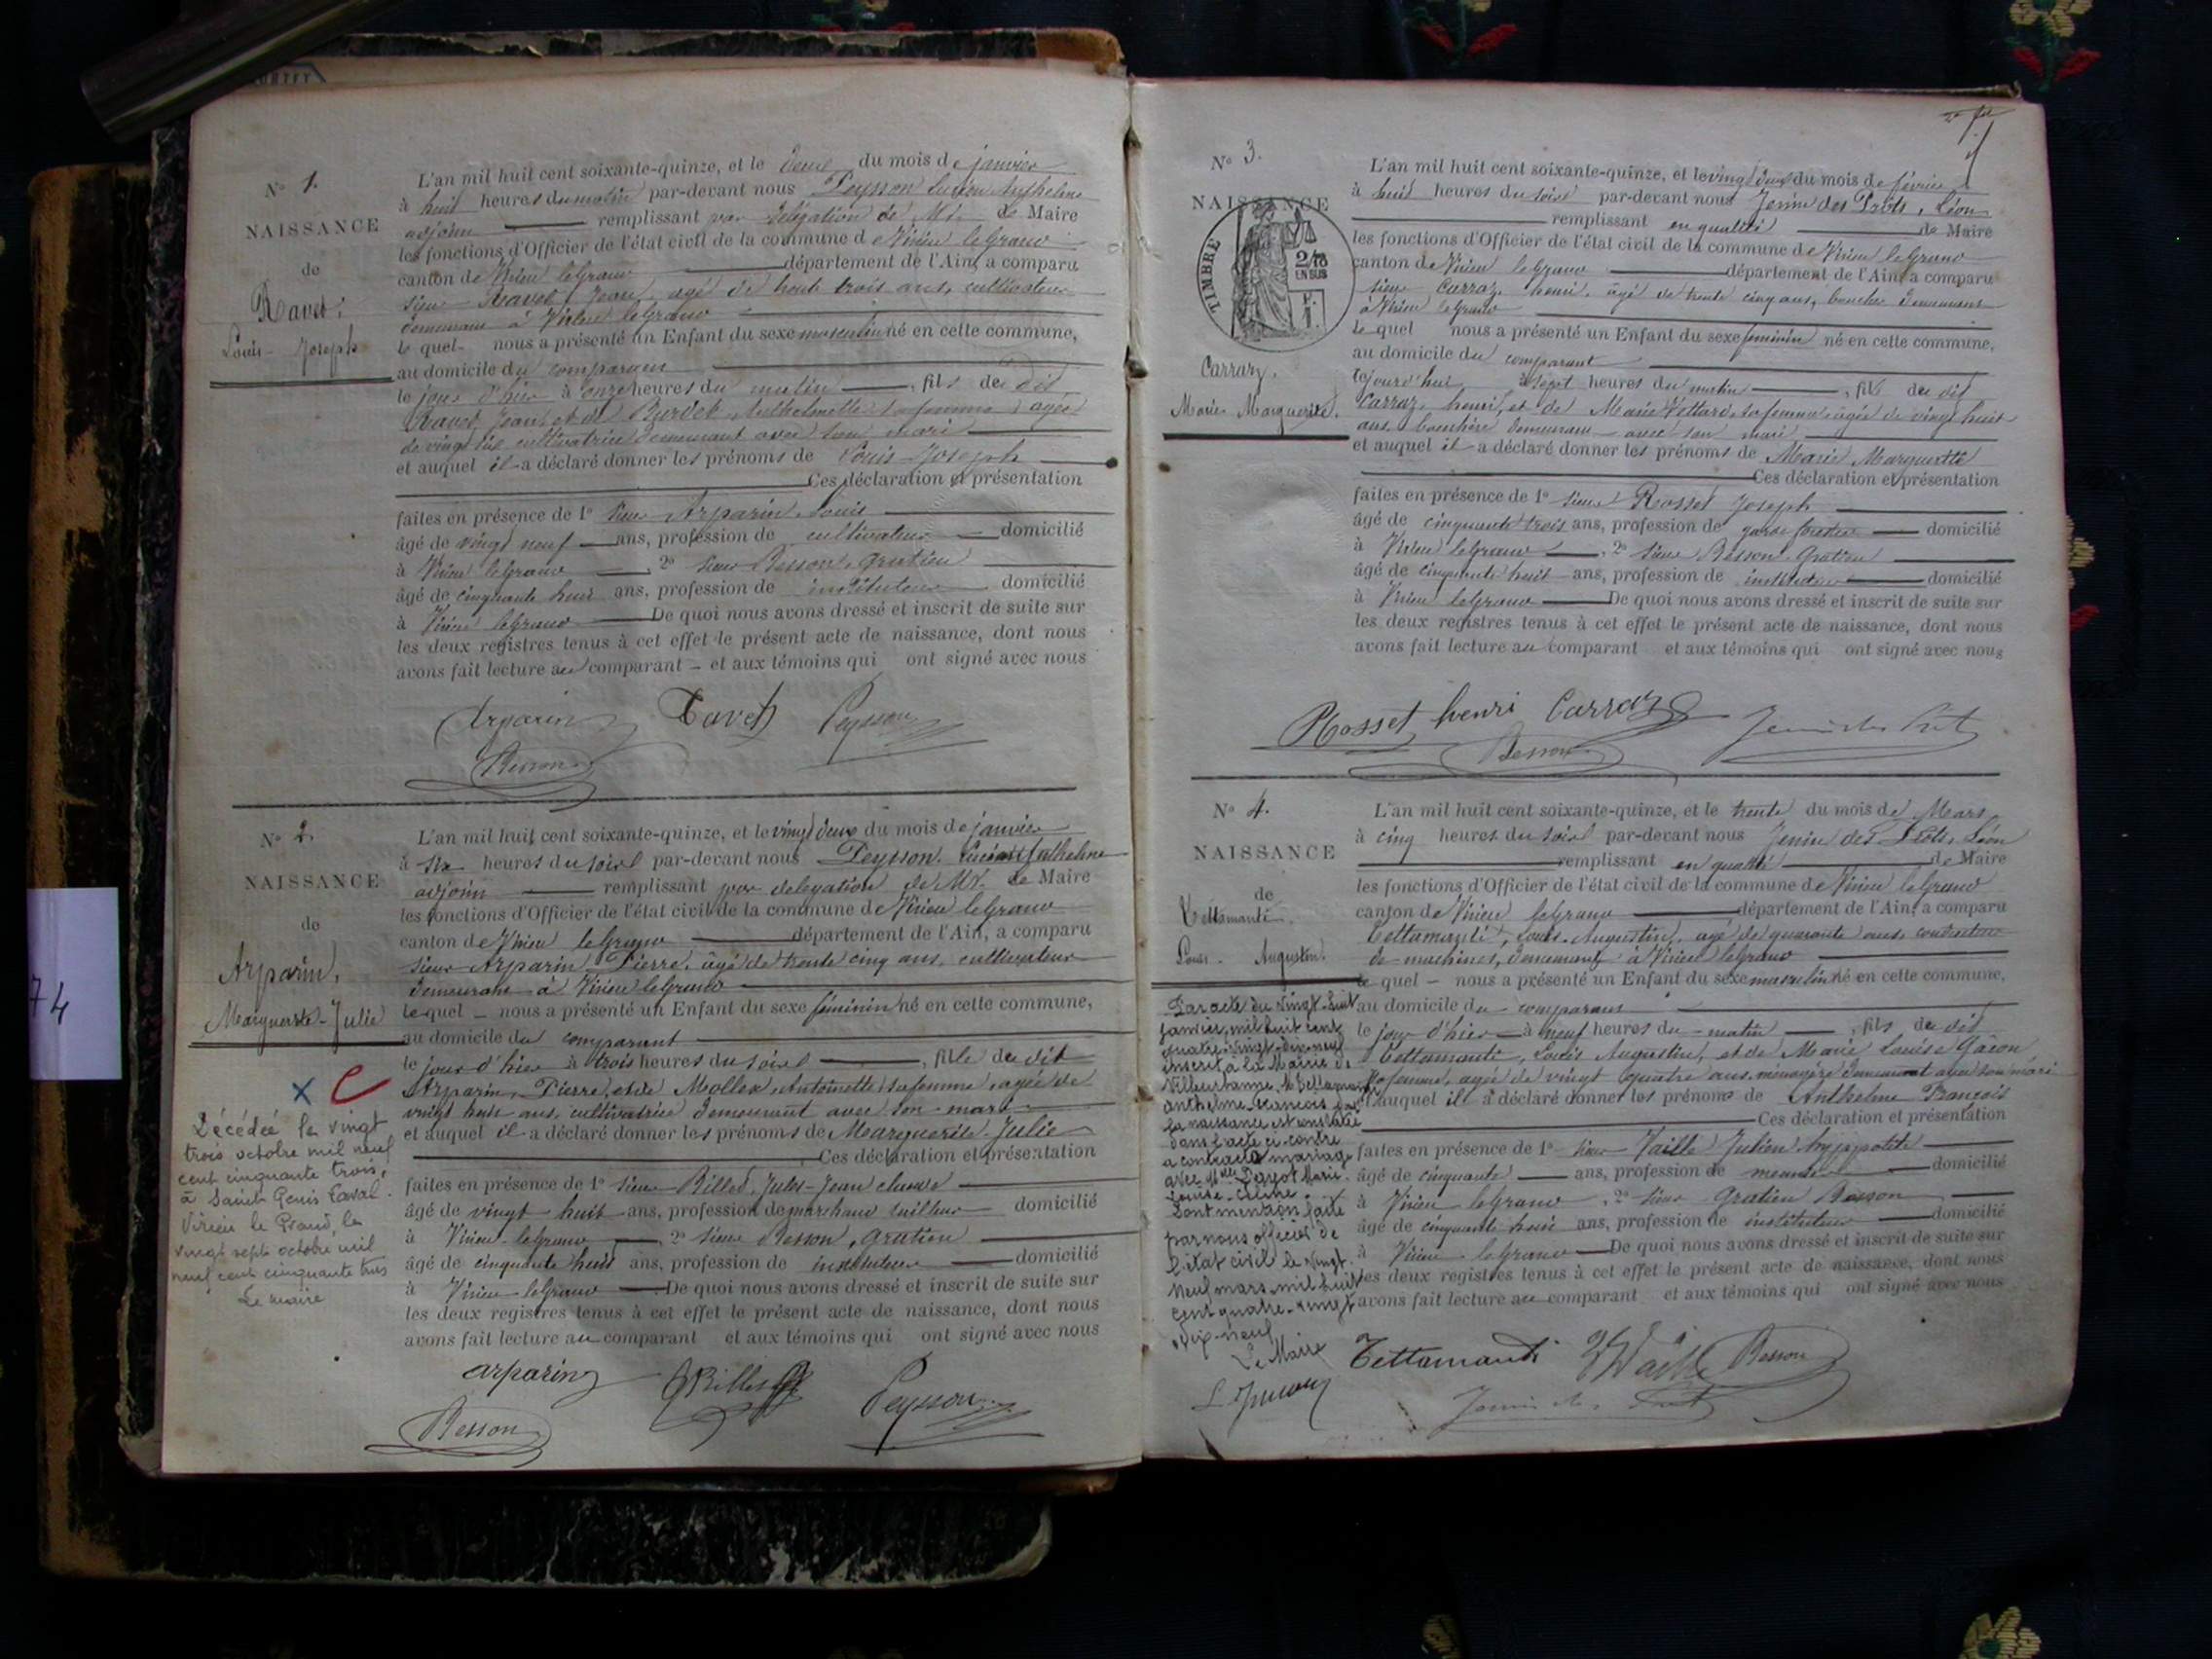 N° 1.
NAISSANCE
de
Ravet
Louis-Joseph
L'an mil huit cent soixante-quinze, et le deux du mois de janvier
à huit heures du matin par-devant nous Peysson Lucien Anthelme
adjoint remplissant par délégation de Mr. le Maire
les fonctions d'Officier de l'état civil de la commune de Virieu le Grand
canton de Virieu le Grand département de l'Ain, a comparu
sieur Ravet Jean, agé de trente trois ans, cultivateur
demeurant à Virieu le Grand
lequel nous a présenté un Enfant du sexe masculin né en cette commune,
au domicile du comparant
le jour d'hier à onze heures du matin, fils du dit
Ravet Jean et de Burdet Anthelmette sa femme agée
de vingt six cultivatrice demeurant avec son mari
et auquel il a déclaré donner les prénoms de Louis-Joseph
Ces déclaration et présentation
faites en présence de 1° sieur Arparin Louis
âgé de vingt neuf ans, profession de cultivateur domicilié
à Virieu le Grand, 2° sieur Besson, Gratien
âgé de cinquante huit ans, profession de instituteur domicilié
à Virieu le Grand De quoi nous avons dressé et inscrit de suite sur
les deux registres tenus à cet effet le présent acte de naissance, dont nous
avons fait lecture au comparant et aux témoins qui ont signé avec nous
Arparin Ravet Peysson
Besson
N° 2.
NAISSANCE
de
Arparin,
Marguerite-Julie
L'an mil huit cent soixante-quinze, et le vingt deux du mois de janvier
à six heures du soir par-devant nous Peysson Lucien Anthelme
adjoint remplissant par délégation de Mr. le Maire
les fonctions d'Officier de l'état civil de la commune de Virieu le Grand
canton de Virieu le Grand département de l'Ain, a comparu
sieur Arparin Pierre, âgé de trente cinq ans, cultivateur
demeurant à Virieu le Grand
lequel nous a présenté un Enfant du sexe féminin né en cette commune,
au domicile du comparant
le jour d'hier à trois heures du soir, fille du dit
Arparin, Pierre, et de Mollex, Antoinette sa femme, agée de
vingt huit ans, cultivatrice demeurant avec son mari
et auquel il a déclaré donner les prénoms de Marguerite-Julie
Ces déclaration et présentation
faites en présence de 1° sieur Billet, Jules-Jean claude
âgé de vingt huit ans, profession de marchand tailleur domicilié
à Virieu-le Grand, 2° sieur Besson, Gratien
âgé de cinquante huit ans, profession de instituteur domicilié
à Virieu-le Grand De quoi nous avons dressé et inscrit de suite sur
les deux registres tenus à cet effet le présent acte de naissance, dont nous
avons fait lecture au comparant et aux témoins qui ont signé avec nous
arparin Billet Peysson
Besson
Décédée le vingt
trois octobre mil neuf
cent cinquante trois,
à Saint Genis Laval.
Virieu le Grand, le
vingt sept octobre mil
neuf cent cinquante trois
Le maire
74
N° 3.
NAISSANCE
TIMBRE
2/10
EN SUS
Carraz.
Marie Marguerite.
L'an mil huit cent soixante-quinze, et le vingt deux du mois de février
à huit heures du soir par-devant nous Jenin des Prots, Léon
remplissant en qualité de Maire
les fonctions d'Officier de l'état civil de la commune de Virieu le Grand
canton de Virieu le Grand département de l'Ain, a comparu
sieur Carraz henri, âgé de trente cinq ans, boucher demeurant
à Virieu le Grand
lequel nous a présenté un Enfant du sexe féminin né en cette commune,
au domicile du comparant
cejourd'hui à sept heures du matin, fille du dit
Carraz, henri, et de Marie Vettard, sa femme agée de vingt huit
ans bouchère demeurant avec son mari
et auquel il a déclaré donner les prénoms de Marie Marguerite
Ces déclaration et présentation
faites en présence de 1° sieur Rosset Joseph
âgé de cinquante trois ans, profession de garde forestier domicilié
à Virieu le Grand, 2° sieur Besson, Gratien
âgé de cinquante huit ans, profession de instituteur domicilié
à Virieu le Grand De quoi nous avons dressé et inscrit de suite sur
les deux registres tenus à cet effet le présent acte de naissance, dont nous
avons fait lecture au comparant et aux témoins qui ont signé avec nous
Rosset henri Carraz
Besson Jenin des Prots
N° 4.
NAISSANCE
de
Tettamanti
Louis-Augustin
L'an mil huit cent soixante-quinze, et le trente du mois de Mars
à cinq heures du soir par-devant nous Jenin des Prots, Léon
remplissant en qualité de Maire
les fonctions d'Officier de l'état civil de la commune de Virieu le Grand
canton de Virieu le Grand département de l'Ain, a comparu
Tettamanti, Louis-Augustin, agé de quarante ans, conducteur
de machines, demeurant à Virieu le Grand
lequel nous a présenté un Enfant du sexe masculin né en cette commune,
au domicile du comparant
le jour d'hier à neuf heures du matin, fils du dit
Tettamanti, Louis Augustin, et de Marie Louise Gâcon,
sa femme, agée de vingt quatre ans, ménagère demeurant avec son mari
et auquel il a déclaré donner les prénoms de Anthelme François
Ces déclaration et présentation
faites en présence de 1° sieur Vaille Julien hyppolite
âgé de cinquante ans, profession de domicilié
à Virieu le Grand, 2° sieur Gratien Besson
âgé de cinquante huit ans, profession de instituteur domicilié
à Virieu le Grand De quoi nous avons dressé et inscrit de suite sur
les deux registres tenus à cet effet le présent acte de naissance, dont nous
avons fait lecture au comparant et aux témoins qui ont signé avec nous
Tettamanti Vaille Besson
Jenin des Prots
Par acte du vingt-huit
janvier, mil huit cent
quatre-vingt-dix-neuf
inscrit à la Mairie de
Villeurbanne, M. Tettamanti
Anthelme François dont
la naissance est constatée
dans l'acte ci-contre
a contracté mariage
avec Melle Marie
Louise
Dont mention faite
par nous officier de
l'état civil le vingt
neuf mars mil huit
cent quatre-vingt
dix-neuf
Le Maire